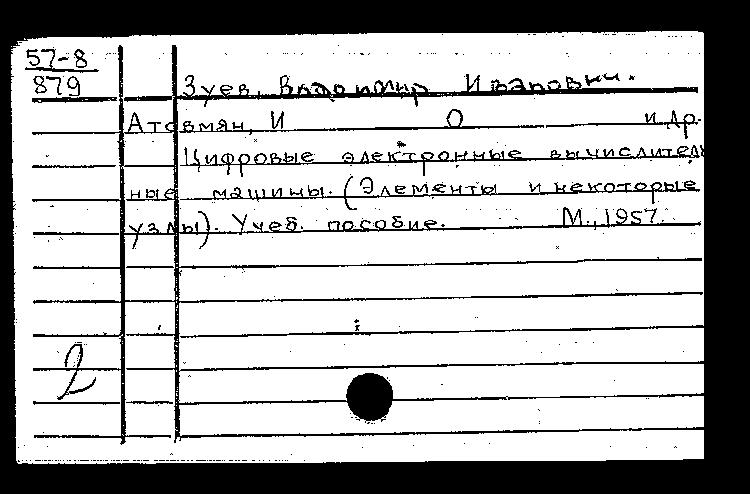 57-8
879
Зуев, Владимир Иванович.
Атовмян, И О и др.
Цифровые электронные вычислитель
ные машины. (Элементы и некоторые
узлы). Учеб. пособие. М., 1957.
2